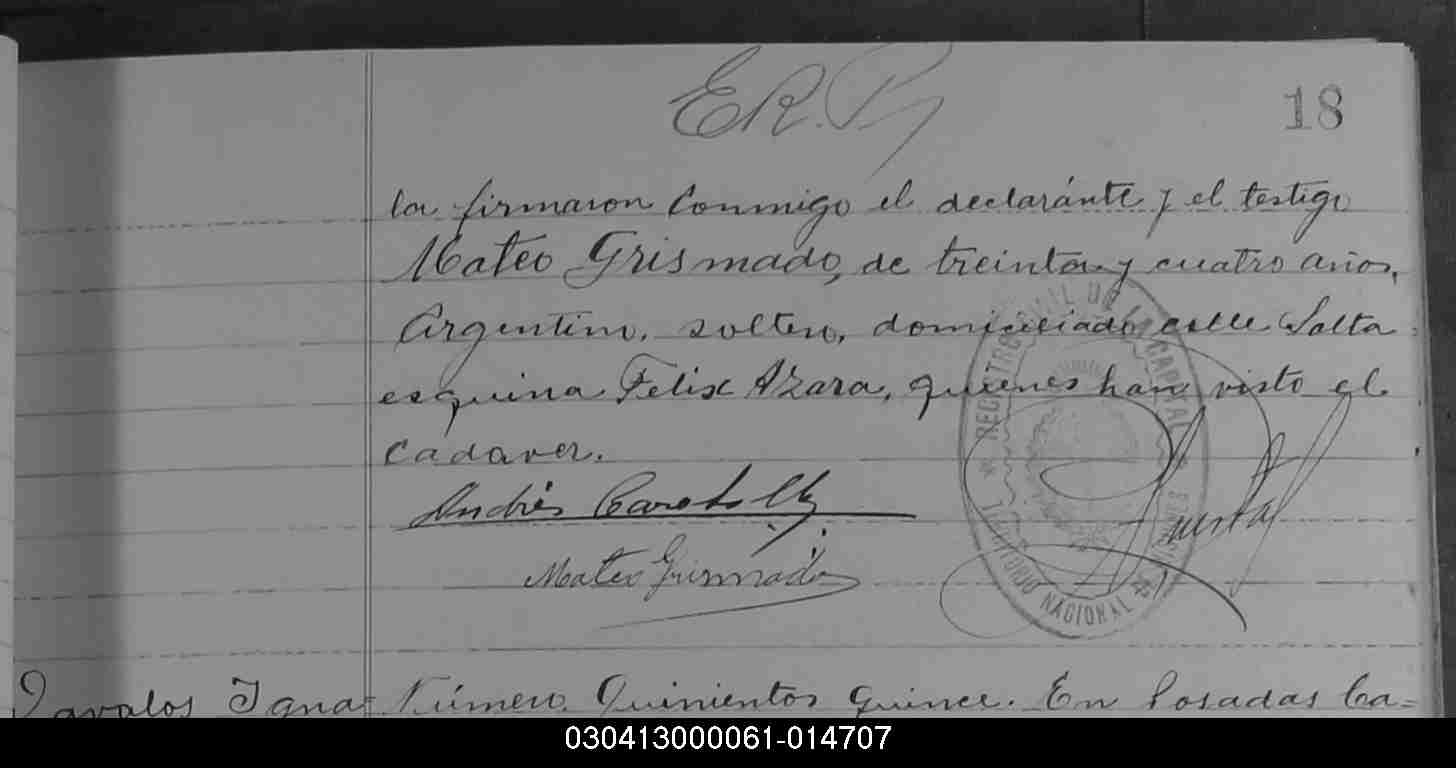 18
la firmaron conmigo el declaránte y el testigo
Mateo Grismado, de treinta y cuatro años,
Argentino, soltero, domiciliado calle Salta
esquina Felix Azara, quienes han visto el
cadaver.
Andrés
Mateo Grismado
REGISTRO CIVIL DE LA CAPITAL
TERRITORIO NACIONAL DE MISIONES
Davalos Igna- Número Quinientos quince. En Posadas Ca=
030413000061-014707